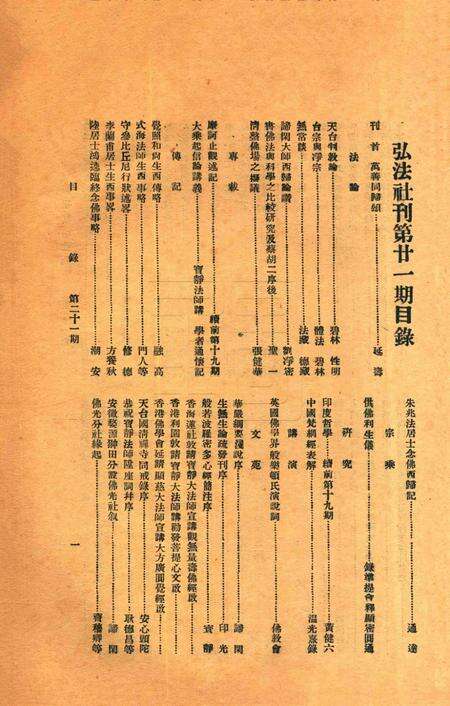 弘法社刊第廿一期目錄
刊首 萬善同歸頌……延壽
法論
天台判教論……碧林 性明
台宗與淨宗……體法 碧林
無常談……法藏 德藏
諦閑大師西歸論讚……劉淨密
書佛法與科學之比較研究及蔡胡二序後……聖一
清整佛場之擬議……張健華
專載
摩訶止觀述記……續前第十九期
大乘起信論講義……寶靜法師講 學者通懷記
傳記
覺照和尚生西傳略……融高
式海法師生西事略……門人等
守慧比丘尼行狀述畧……修德
李蘭甫居士生西事畧……方養秋
陸居士鴻逵臨終念佛事略……湖安
朱兆法居士念佛西歸記……通達
宗乘
供佛利生儀……錄準提會釋顯密圓通
研究
印度哲學……續前第十九期……黃健六
中國梵網經表解……溫光熹錄
講演
英國佛學界般樂頓氏演說詞……佛教會
文苑
華嚴綱要淺說序……諦閑
生無生論疏發刊序……印光
般若波羅密多心經箇注序……寶靜
香海蓮社敦請寶靜大法師宣講觀無量壽佛經啟……
香港利園敦請寶靜大法師講勸發菩提心文啟……
香港佛學會延請顯慈大法師宣講大方廣圓覺經啟……
天台國清禪寺同戒錄序……安心頭陀
恭祝寶靜法師陞座詞并序……耿德昌等
安徽婺源辦田分設佛光社叙……諦閑
佛光分社緣起……齊穗卿等
目錄 第二十一期 一